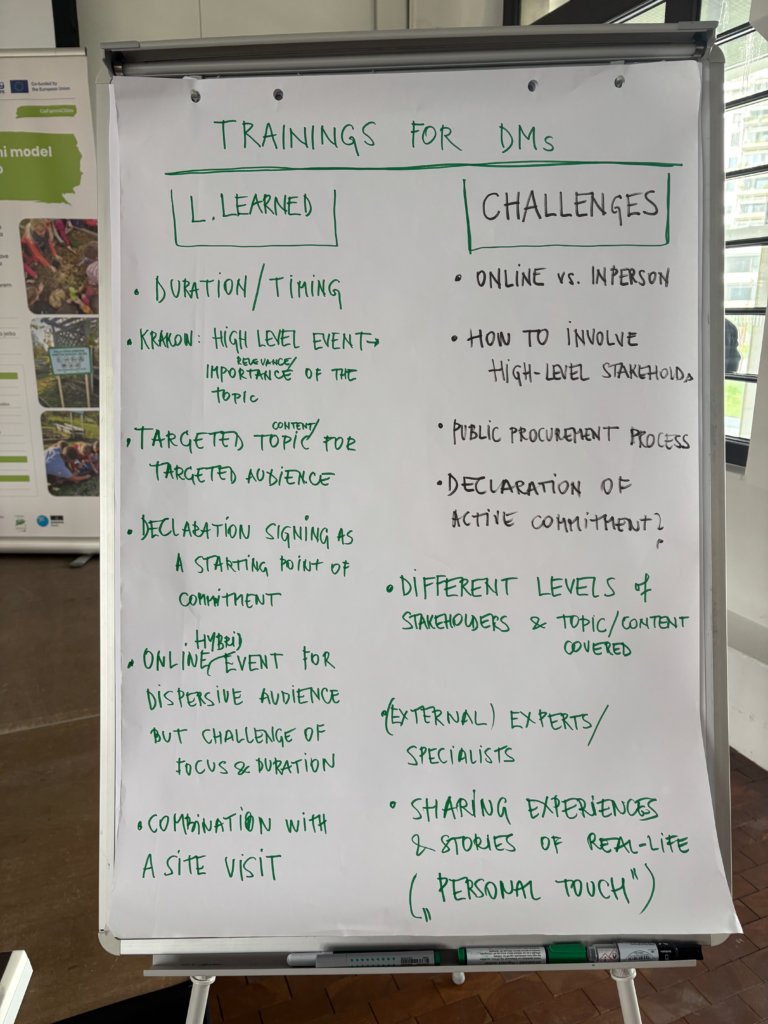 TRAININGS FOR DMs
L. LEARNED
• DURATION/TIMING
• KRAKOW: HIGH LEVEL EVENT→
RELEVANCE/
IMPORTANCE OF THE
TOPIC
CONTENT/
• TARGETED TOPIC FOR
TARGETED AUDIENCE
• DECLARATION SIGNING AS
A STARTING POINT OF
COMMITMENT
HYBRID
• ONLINE, EVENT FOR
DISPERSIVE AUDIENCE
BUT CHALLENGE OF
FOCUS & DURATION
• COMBINATION WITH
A SITE VISIT
CHALLENGES
• ONLINE VS. INPERSON
• HOW TO INVOLVE
HIGH-LEVEL STAKEHOLD.
• PUBLIC PROCUREMENT PROCESS
• DECLARATION OF
ACTIVE COMMITMENT?
• DIFFERENT LEVELS of
STAKEHOLDERS & TOPIC/CONTENT
COVERED
(EXTERNAL) EXPERTS/
SPECIALISTS
• SHARING EXPERIENCES
& STORIES OF REAL-LIFE
(„PERSONAL TOUCH")
Co-funded by
the European Union
model